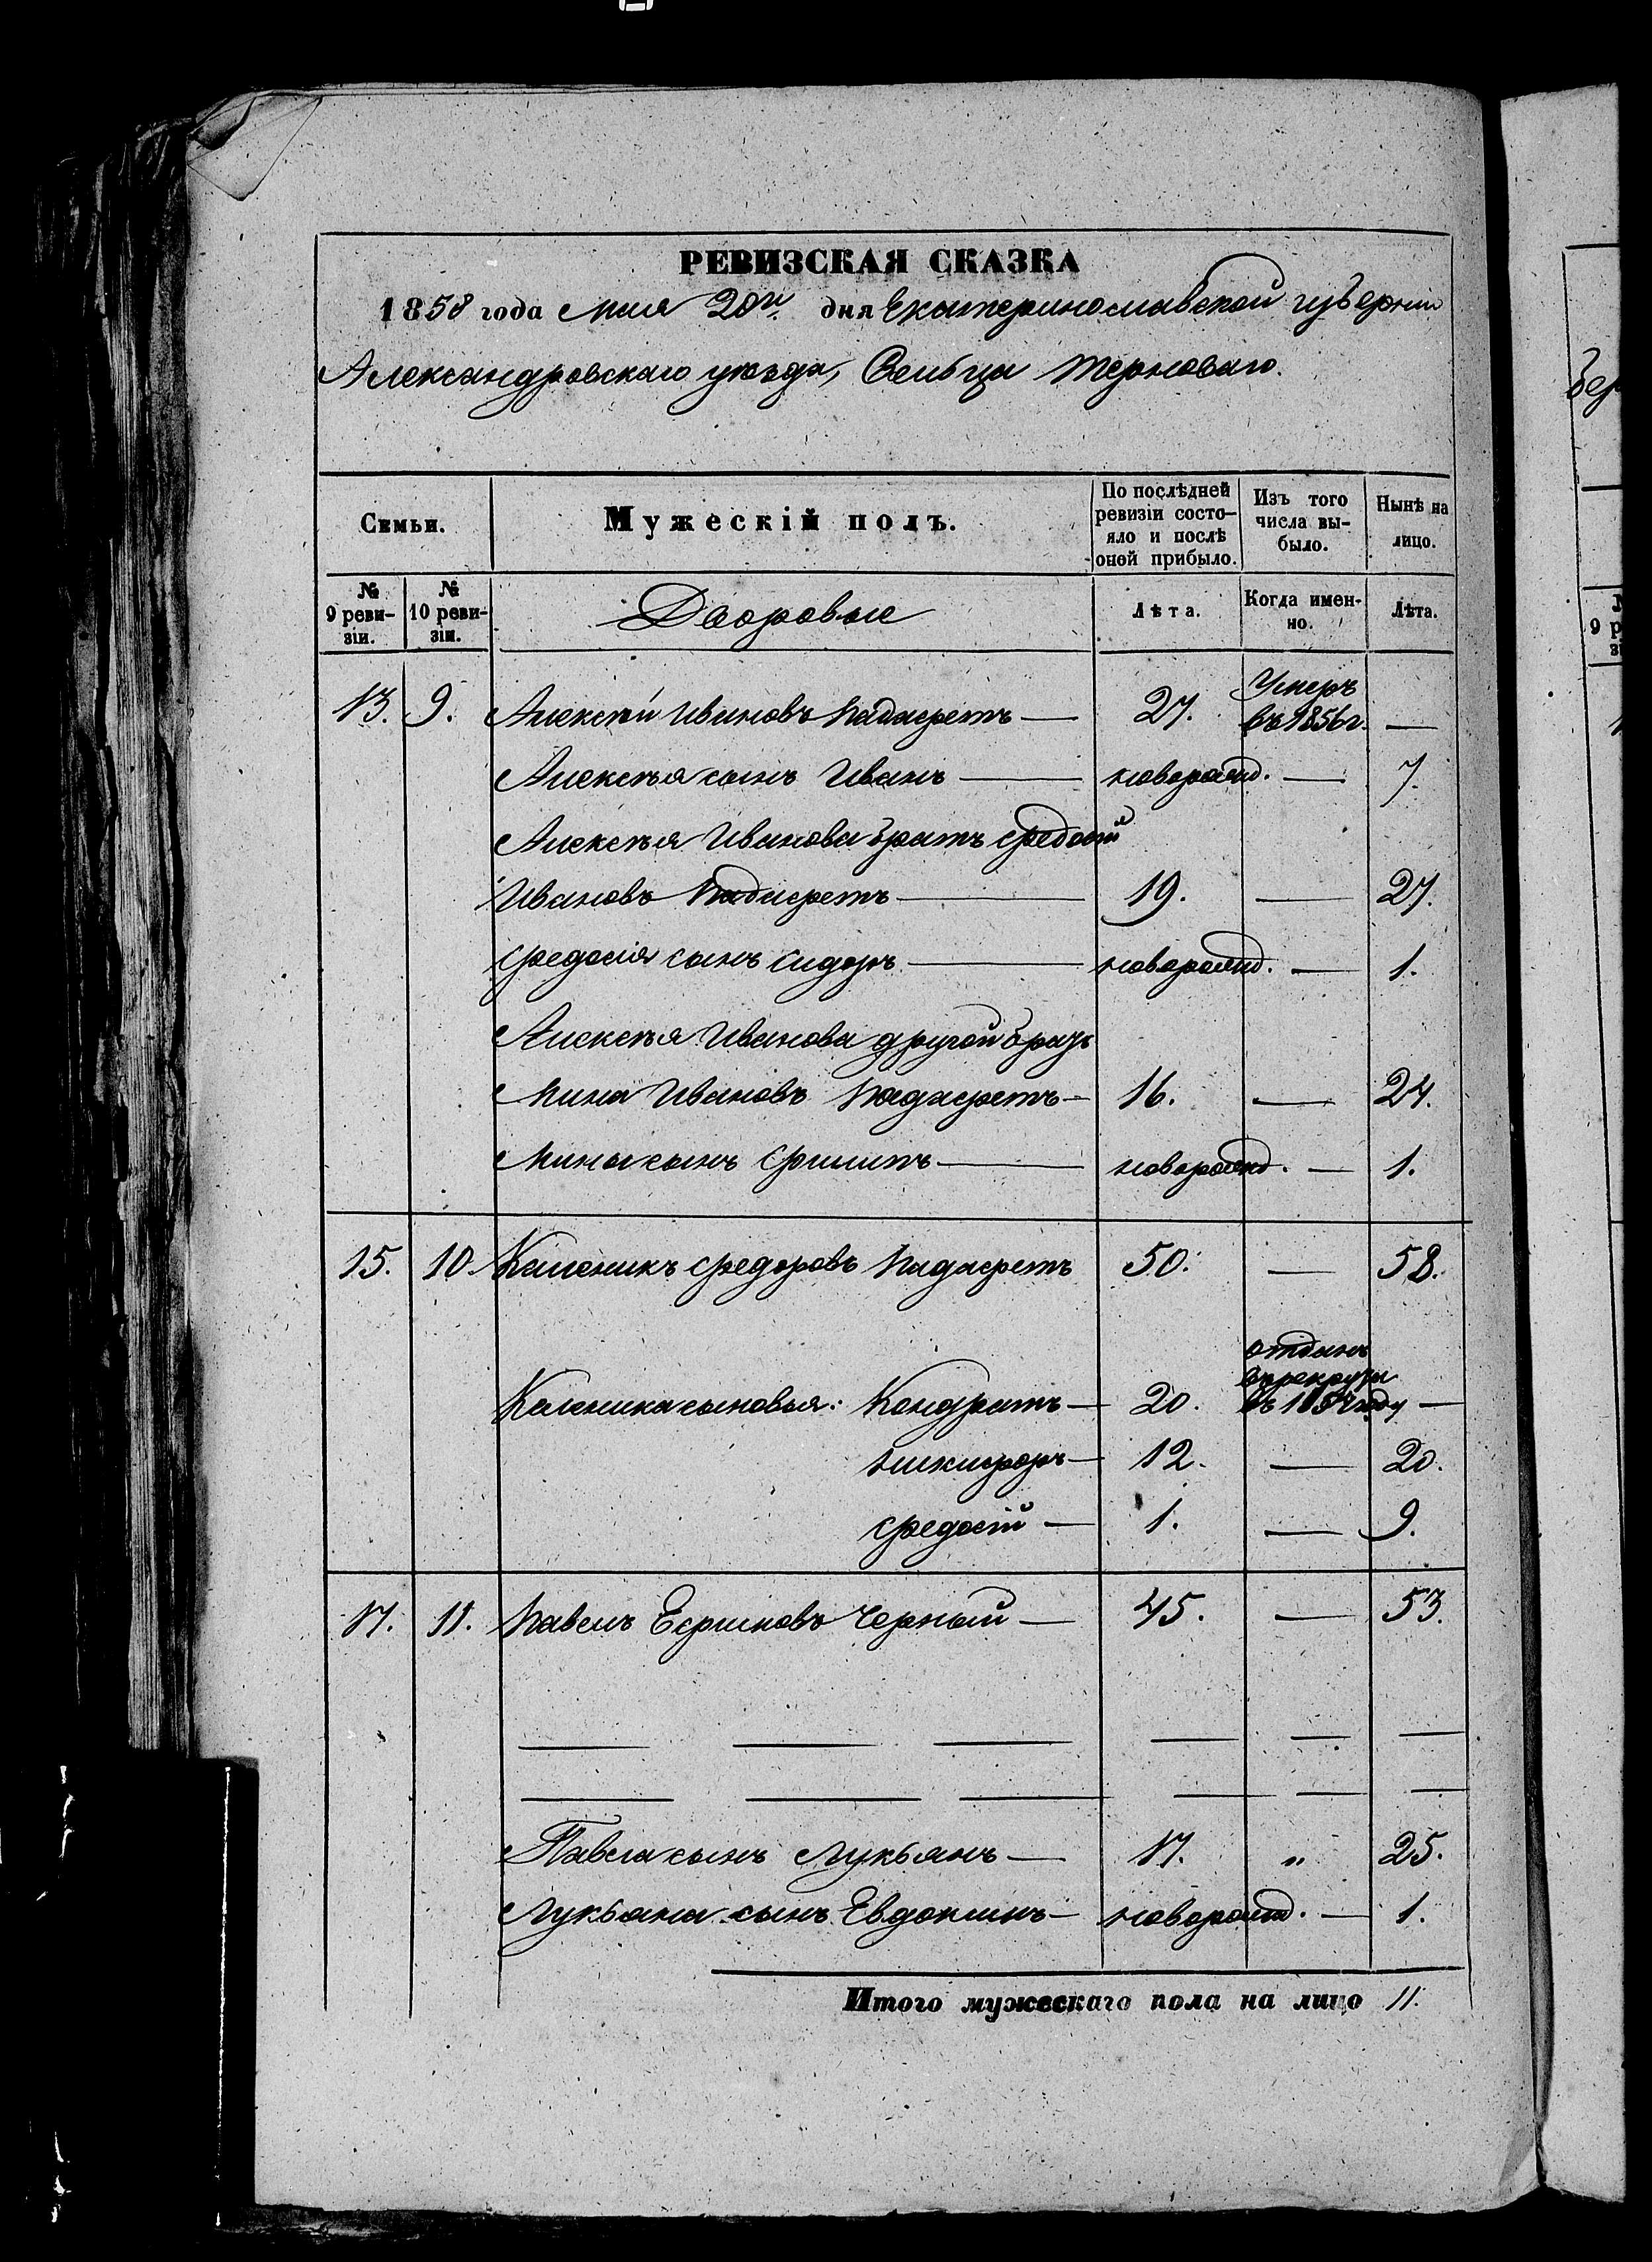 РЕВИЗСКАЯ СКАЗКА
1858 года Мая 20го дня Екатеринославской губернии
Александровскаго уѣзда, Сельца Терноваго.
Семьи.
Мужескій полъ.
По послѣдней ревизіи состояло и послѣ оной прибыло.
Изъ того числа выбыло.
Нынѣ на лицо.
№ 9 ревизіи.
№ 10 ревизіи.
Дворовые
Лѣта.
Когда именно.
Лѣта.
13. 9. Алексѣй Ивановъ — 27. Умеръ въ 1856 г. —
Алексѣя сынъ Иванъ — новорожд. — 7.
Алексѣя Иванова братъ Федосій
Ивановъ — 19. — 27.
Федосія сынъ Сидоръ — новорожд. — 1.
Алексѣя Иванова другой братъ
Мина Ивановъ — 16. — 24.
Мины сынъ Филипъ — новорожд. — 1.
15. 10. Каленикъ Федоровъ 50. — 58.
Каленика сыновья: Кондратъ — 20. отданъ въ рекруты въ году —
Никифоръ — 12. — 20.
Федосій — 1. — 9.
17. 11. Павелъ Ефимовъ Черный — 45. — 53.
— — — — — —
— — — — — —
Павла сынъ Лукьянъ — 17. " 25.
Лукьяна сынъ Евдокимъ — новорожд. — 1.
Итого мужескаго пола на лицо 11.